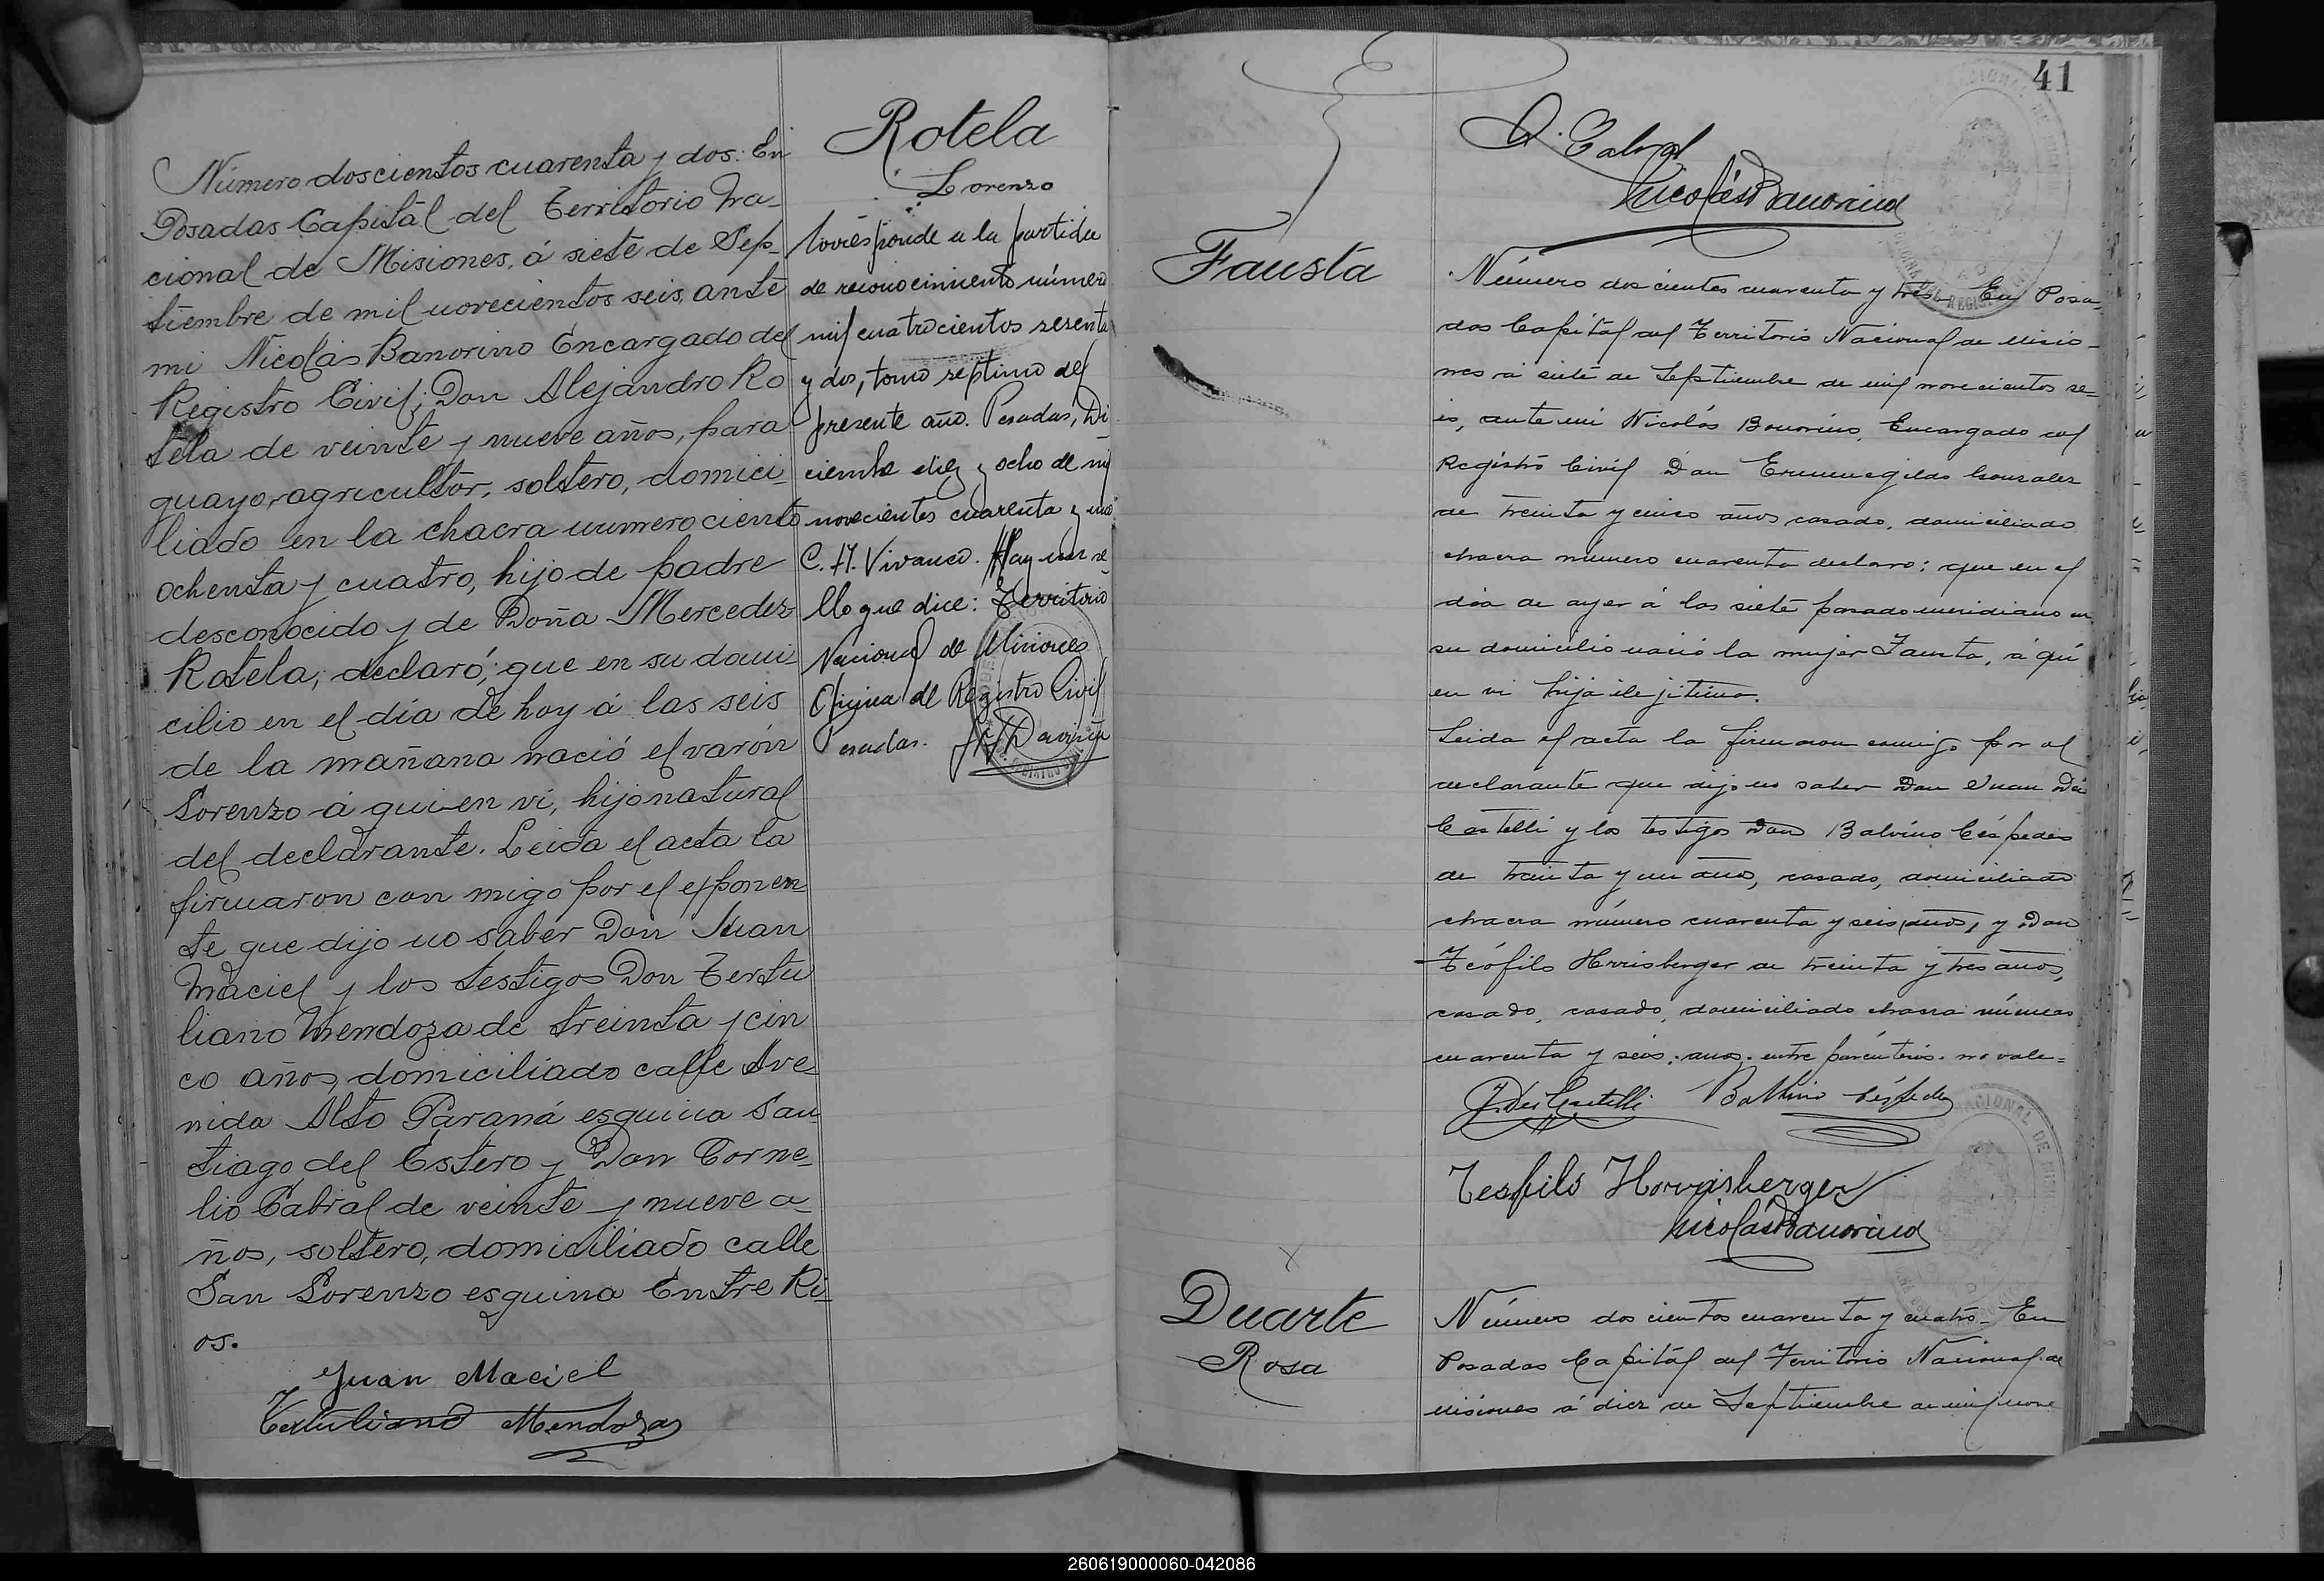 Número doscientos cuarenta y dos: En
Posadas Capital del Territorio Na-
cional de Misiones, á siete de Sep-
tiembre de mil novecientos seis, ante
mi Nicolás Bonorino Encargado del
Registro Civil; Don Alejandro Ro
tela de veinte y nueve años, para
guayo, agricultor, soltero, domici-
liado en la chacra numero ciento
ochenta y cuatro, hijo de padre
desconocido y de Doña Mercedez
Rotela; declaró; que en su domi-
cilio en el día de hoy á las seis
de la mañana nació el varón
Lorenzo á quien ví, hijo natural
del declarante. Leida el acta la
firmaron con migo por el exponen
te que dijo no saber Don Juan
Maciel y los testigos Don Tertu
liano Mendoza de treinta y cin
co años, domiciliado calle Ave-
nida Alto Paraná esquina San
tiago del Estero y Don Corne-
lio Cabral de veinte y nueve a-
ños, soltero, domiciliado calle
San Lorenzo esquina Entre Ri-
os.
Juan Maciel
Tertuliano Mendoza
Rotela
Lorenzo
Corresponde a la partida
de reconocimiento número
mil cuatrocientos sesenta
y dos, tomo séptimo del
presente año. Posadas, Di-
ciembre diez y ocho de mil
novecientos cuarenta y uno.
C. H. Vivanco. Hay un se-
llo que dice: Territorio
Nacional de Misiones
Oficina del Registro Civil
Posadas.
41
C. Cabral
Nicolás Bonorino
Fausta
Número dos cientos cuarenta y tres En Posa-
das Capital del Territorio Nacional de Misio-
nes á siete de Septiembre de mil novecientos se-
is, ante mi Nicolás Bonorino, Encargado del
Registro Civil Don Ermenegildo Gonzalez
de treinta y cinco años casado, domiciliado
chacra número cuarenta declaro: que en el
día de ayer á las siete pasado meridiano en
su domicilio nació la mujer Fausta, á qui
en vi hija ilejitima.
Leida el acta la firmaron comigo por el
declarante que dijo no saber Don Juan De
Castelli y los testigos Don Balvino Céspedes
de treinta y un años, casado, domiciliado
chacra número cuarenta y seis (años) y Don
Teófilo Herrisberger de treinta y tres años,
casado, casado, domiciliado chacra número
cuarenta y seis: anos. entre paréntesis. no vale=
J. Des Castelli Balvino Céspedes
Teofilo Horrisberger
Nicolás Bonorino
Duarte
Rosa
Número dos cientos cuarenta y cuatro- En
Posadas Capital del Territorio Nacional de
Misiones á diez de Septiembre de mil nove
260619000060-042086